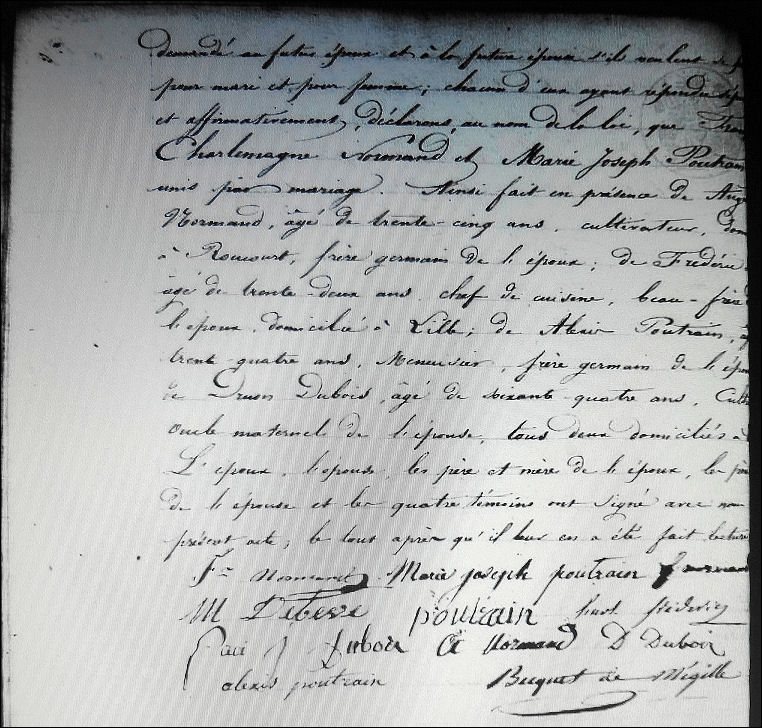 demandé au futur époux et à la future épouse s'ils veulent se
pour mari et pour femme ; chacun d'eux ayant répondu
et affirmativement, déclarons, au nom de la loi, que
Charlemagne Normand et Marie Joseph Poutrain
unis par mariage. Ainsi fait en présence de
Normand, âgé de trente-cinq ans, cultivateur,
à Roucourt, frère germain de l'époux ; de Frédéric
âgé de trente-deux ans, chef de cuisine, beau-frère
l'époux, domicilié à Lille ; de Alexis Poutrain,
trente-quatre ans, Menuisier, frère germain de
de Druon Dubois, âgé de soixante-quatre ans,
oncle maternel de l'épouse, tous deux domiciliés à
L'époux, l'épouse, les père et mère de l'époux,
de l'épouse et les quatre témoins ont signé avec nous
présent acte, le tout après qu'il leur en a été fait lecture
Fs Normand Marie joseph poutrain
M poutrain huot fréderic
J Dubois normand D Dubois
alexis poutrain Becquet de Mégille